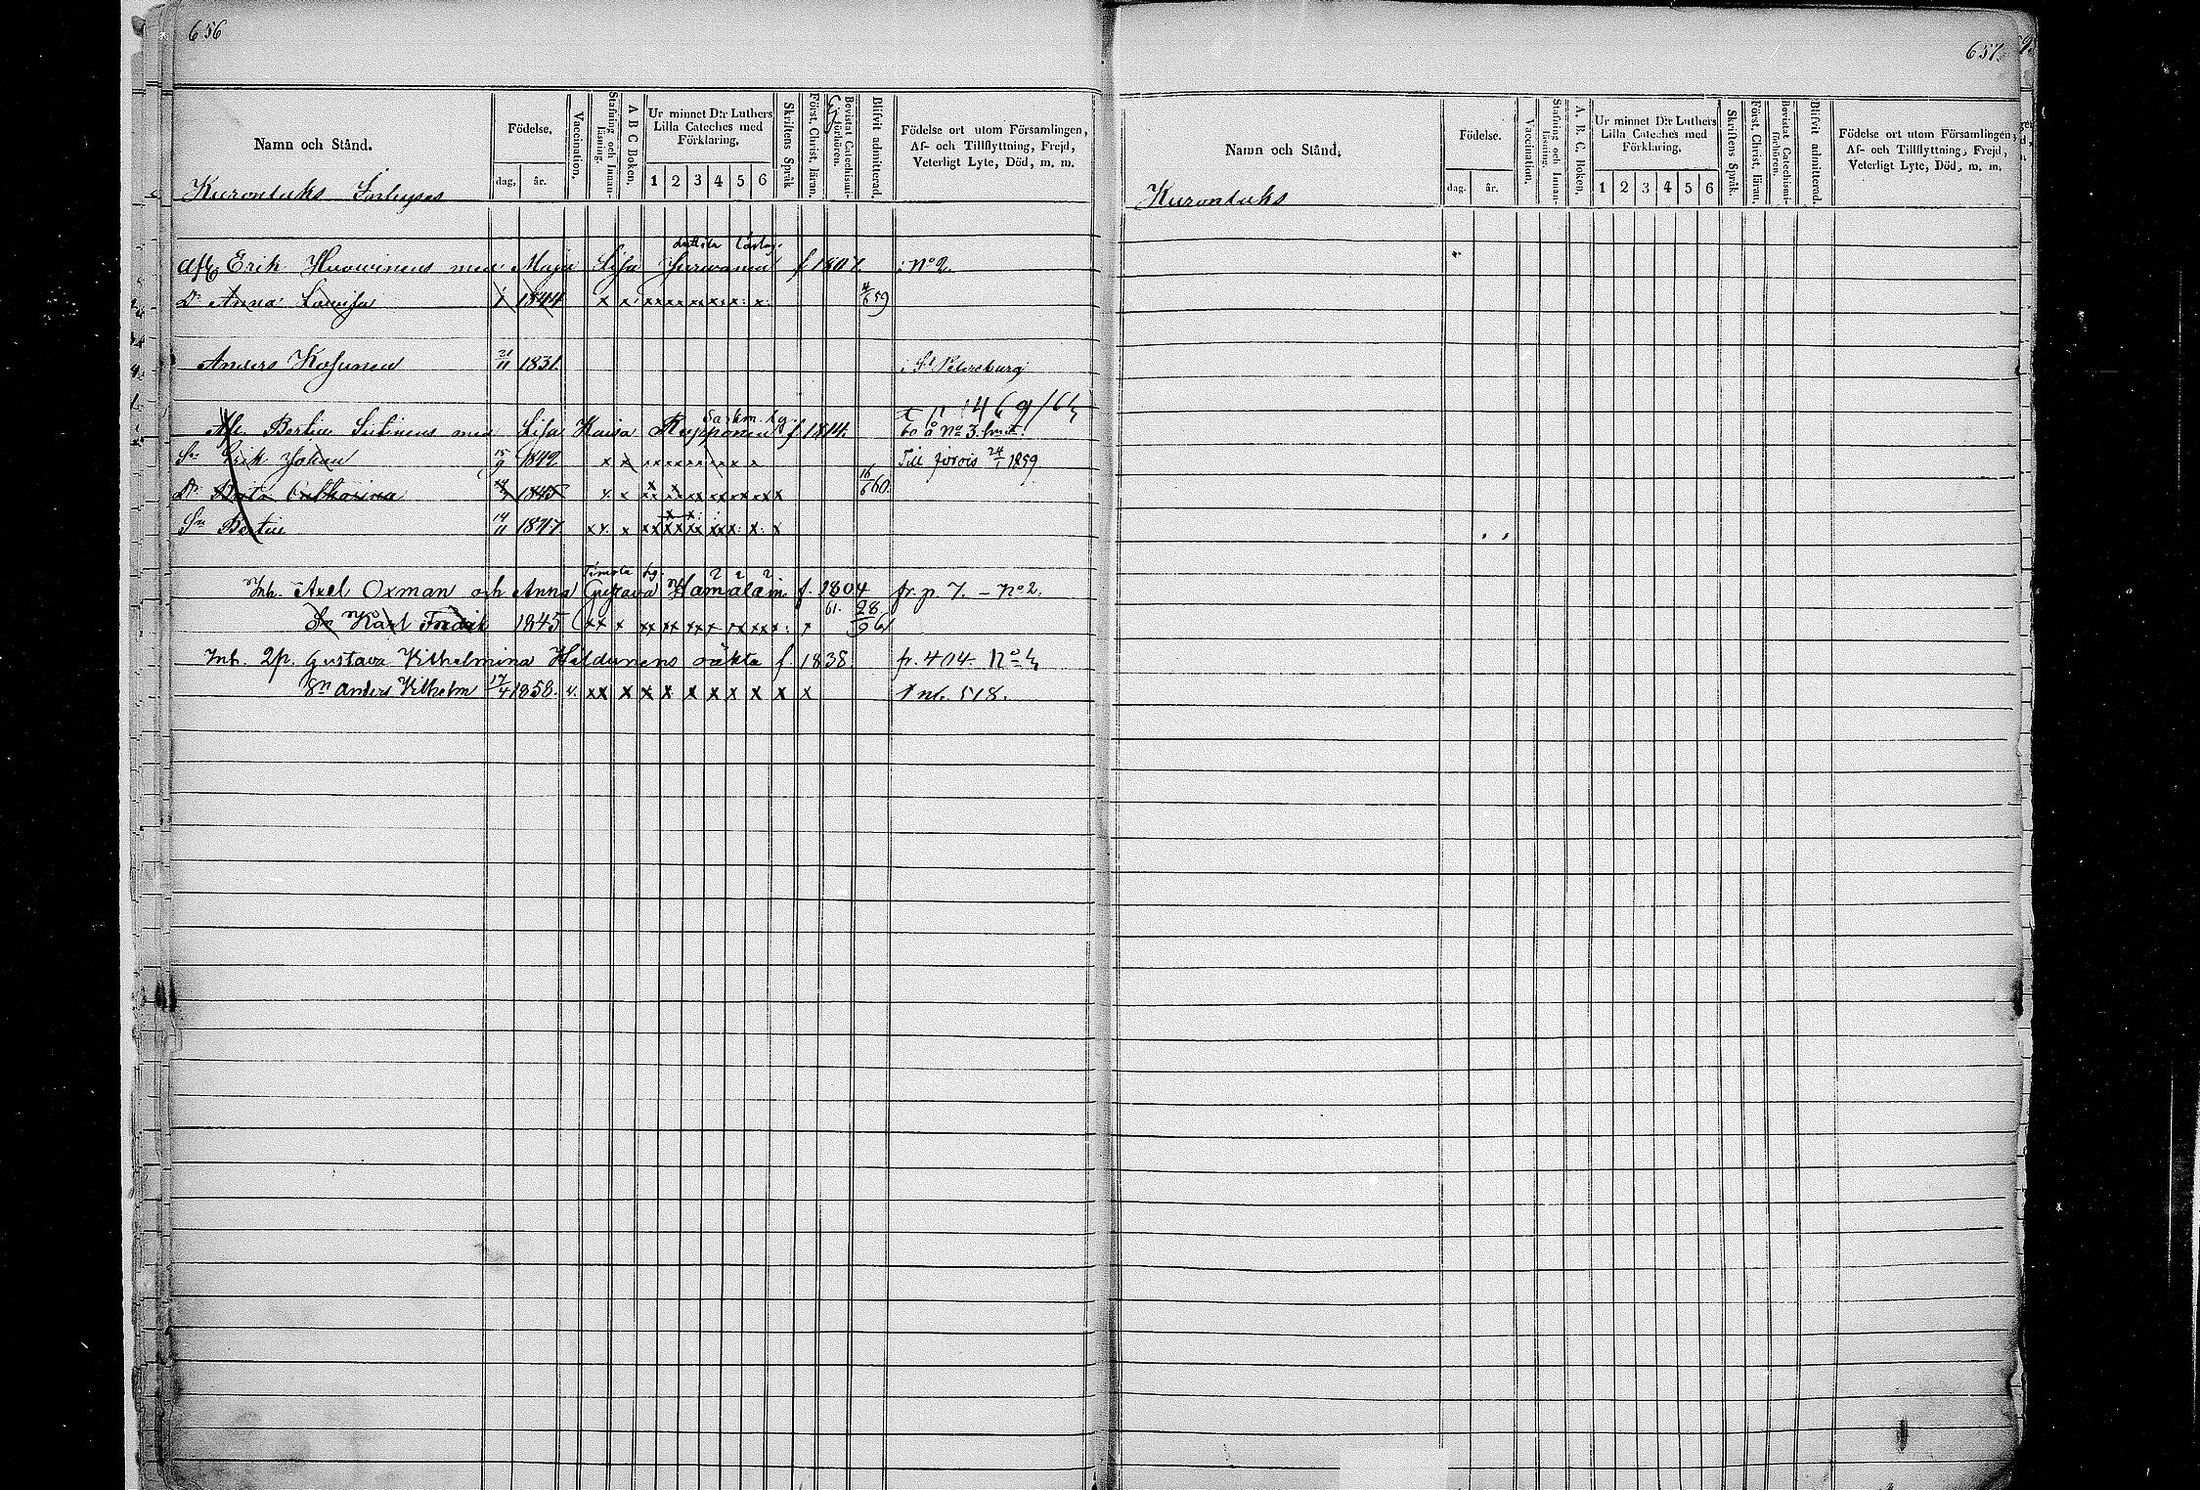 656
Namn och Stånd.
Födelse,
dag, år.
Vaccination,
Stafning och Innan-läsning.
A B C Boken.
Ur minnet D:r Luthers Lilla Cateches med Förklaring,
1 2 3 4 5 6
Skriftens Språk
Först. Christ. läran.
Bevistat Catechismi-förhören.
Blifvit admitterad.
Födelse ort utom Församlingen, Af- och Tillflyttning, Frejd, Veterligt Lyte, Död, m. m.
Kurontuks
Erik med Maja Lisa f 1807. i No 2.
Dr Anna Lovisa 1844 x x x x x x x x x 4/6 59
Anders Kosunen 21/11 1831. i St Petersburg
med Lisa Kaisa Repponen f 1814. No 3.
Sn Erik Johan 15/9 1842 x x x x x x x x x Till Jorois 24/1 1859
Dr Catharina 1845 x x x x x x x x x 16/6 60.
Sn 14/11 1847. x x x x x x x x x x
Inh. Axel Oxman och Anna Gustava Hämäläin f. 1804 fr. p. 7. - No 2.
Sn Karl Fredrik 1845 x x x x x x x x x x 61.
Inh. 2p. Gustava Vilhelmina oäkta f. 1838. fr. 404. No
Sn Anders Vilhelm 17/4 1858. v. xx x x x x x x x x x 518.
657.
Namn och Stånd.
Födelse.
dag. år.
Vaccination,
Stafning och Innan-läsning.
A. B. C. Boken.
Ur minnet D:r Luthers Lilla Cateches med Förklaring,
1 2 3 4 5 6
Skriftens Språk.
Först. Christ. läran.
Bevistat Catechismi-förhören.
Blifvit admitterad.
Födelse ort utom Församlingen, Af- och Tillflyttning, Frejd, Veterligt Lyte, Död, m. m.
Kurontuks